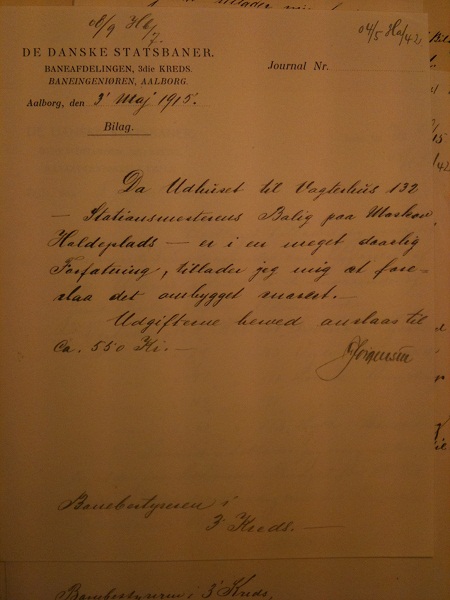 DE DANSKE STATSBANER.
BANEAFDELINGEN, 3die KREDS.
BANEINGENIØREN, AALBORG.
Journal Nr.
Aalborg, den 3' Maj 1915.
Bilag.
Da Udhuset til Vagterhus 132
— Stationsmesterens Bolig paa
Holdeplads — er i en meget daarlig
Forfatning, tillader jeg mig at fore-
slaa det ombygget snarest. —
Udgifterne herved anslaas til
Ca. 550 Kr. —
Banebestyreren i
3' Kreds. —
Banebestyreren i 3' Kreds.